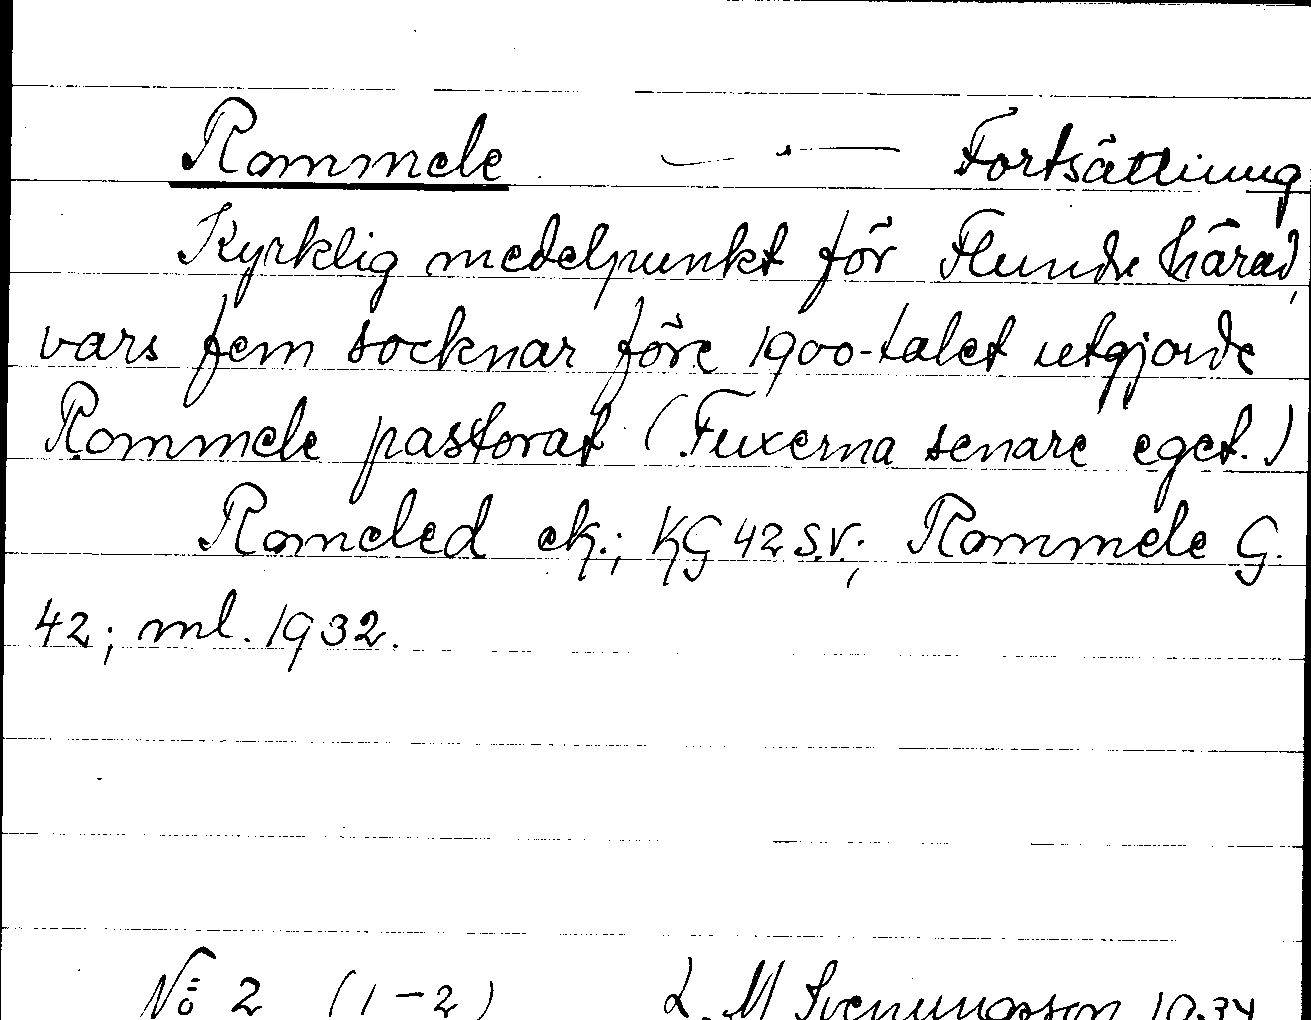 Rommele — · — Fortsättning
Kyrklig medelpunkt för Flundre härad,
vars fem socknar före 1900-talet utgjorde
Rommele pastorat (Fuxerna senare eget.)
Romeled ek.; KG 42 S.V.; Rommele G.
42; ml. 1932.
No 2 (1-2) L. M Svenungsson 1934